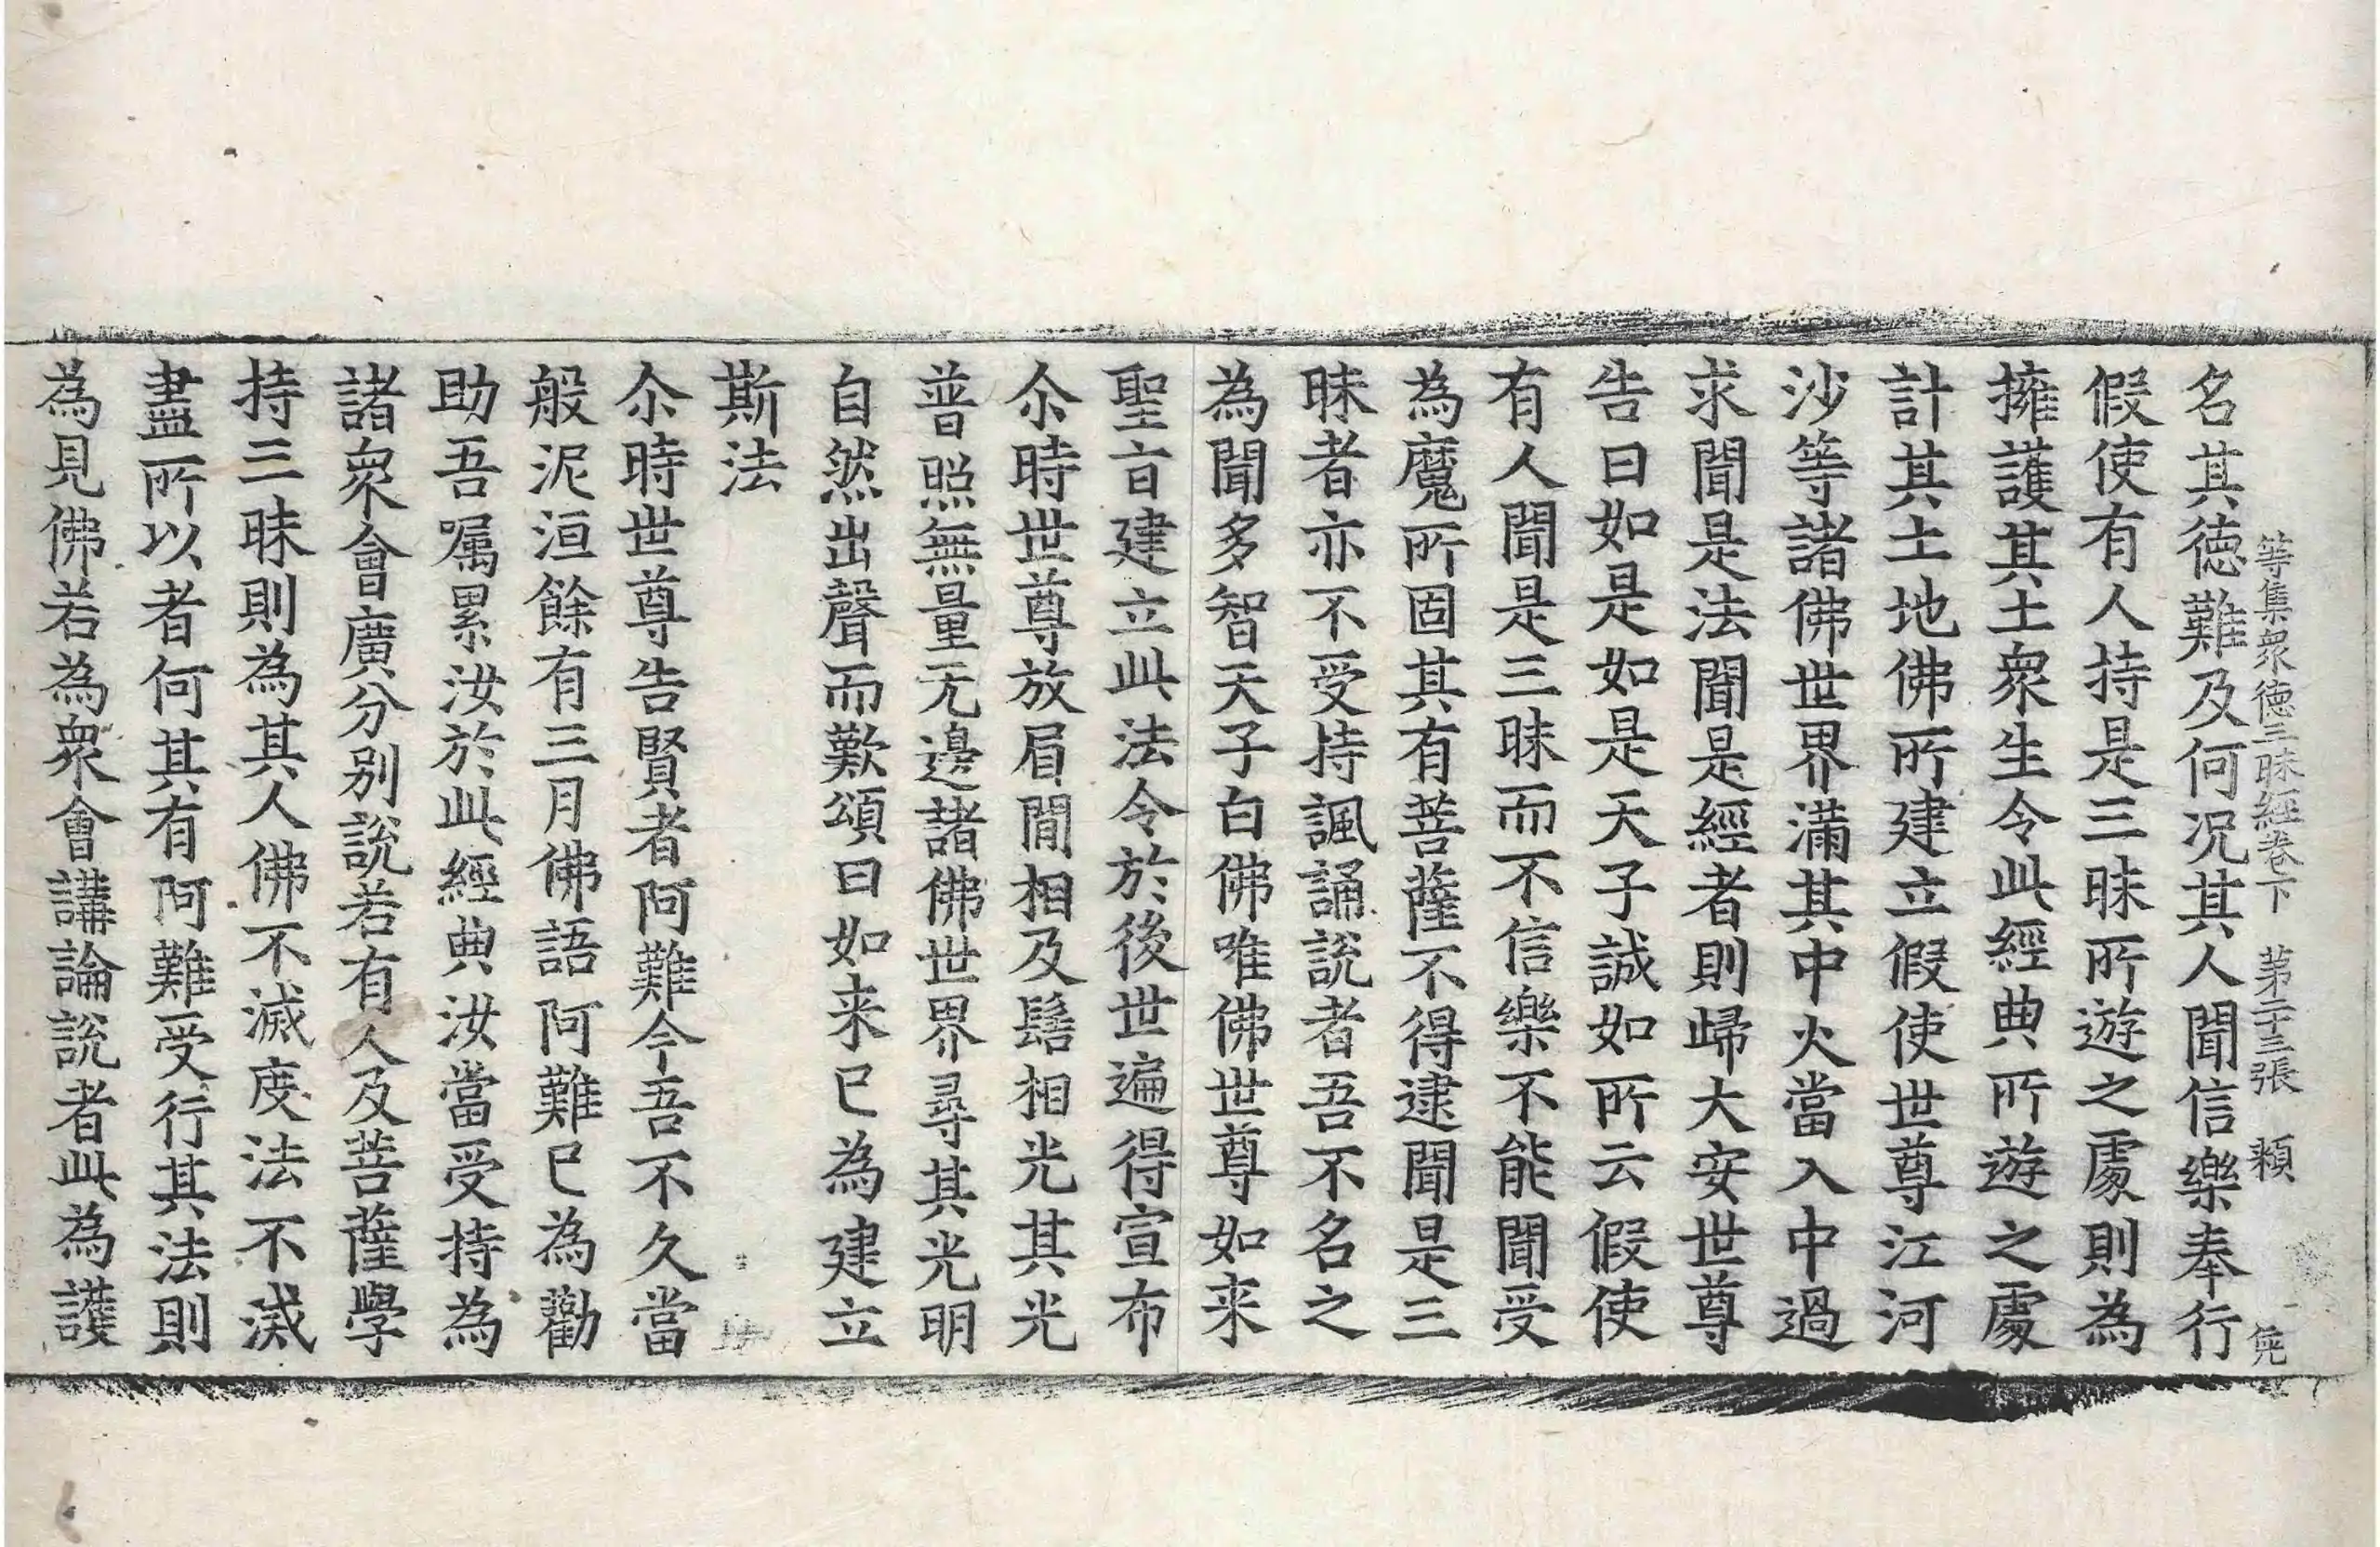 等集衆德三昧經卷下　第二十三張　顙
名其德難及何况其人聞信樂奉行
假使有人持是三昧所遊之處則為
擁護其土衆生令此經典所遊之處
計其土地佛所建立假使世尊江河
沙等諸佛世界滿其中火當入中過
求聞是法聞是經者則歸大安世尊
告曰如是如是天子誠如所云假使
有人聞是三昧而不信樂不能聞受
為魔所固其有菩薩不得逮聞是三
昧者亦不受持諷誦說者吾不名之
為聞多智天子白佛唯佛世尊如来
聖旨建立此法令於後世遍得宣布
尒時世尊放眉間相及髻相光其光
普照無量无邊諸佛世界尋其光明
自然出聲而歎頌曰如来已為建立
斯法
尒時世尊告賢者阿難今吾不久當
般泥洹餘有三月佛語阿難已為勸
助吾嘱累汝於此經典汝當受持為
諸衆會廣分別說若有人及菩薩學
持三昧則為其人佛不滅度法不滅
盡所以者何其有阿難受行其法則
為見佛若為衆會講論說者此為護